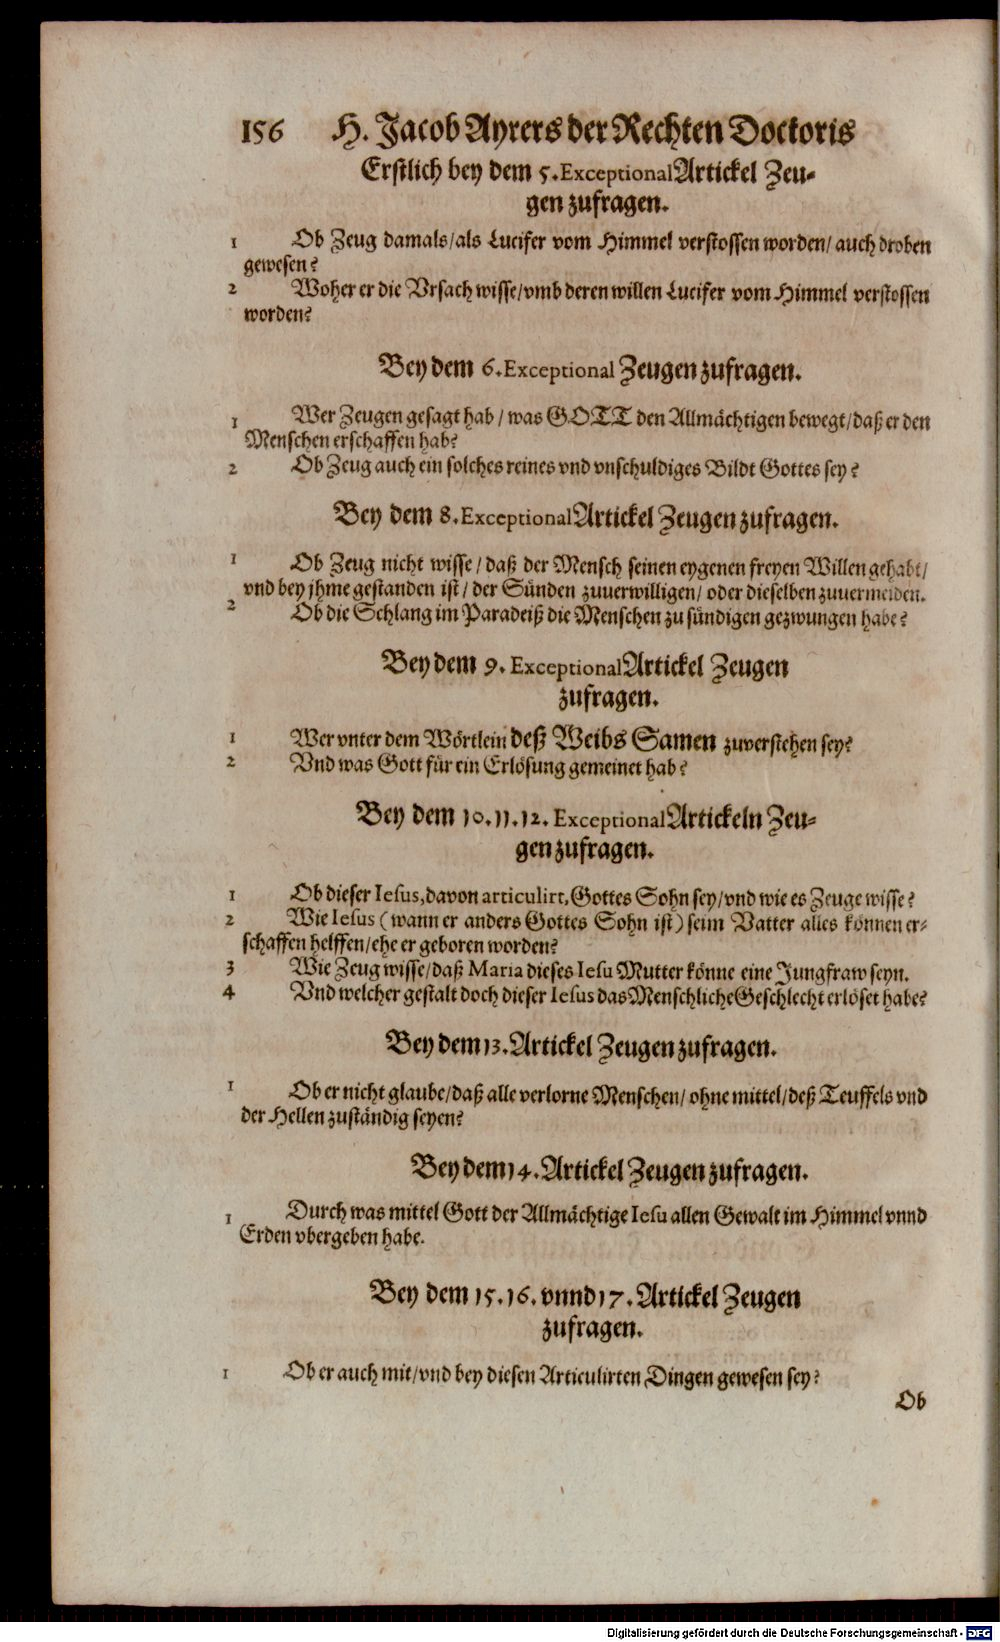 156 H. Jacob Ayrers der Rechten Doctoris
Erstlich bey dem 5. Exceptional Artickel Zeu-
gen zufragen.
1 Ob Zeug damals/als Lucifer vom Himmel verstossen worden/ auch droben
gewesen?
2 Woher er die Vrsach wisse/vmb deren willen Lucifer vom Himmel verstossen
worden?
Bey dem 6. Exceptional Zeugen zufragen.
1 Wer Zeugen gesagt hab / was GOTT den Allmächtigen bewegt/daß er den
Menschen erschaffen hab?
2 Ob Zeug auch ein solches reines vnd vnschuldiges Bildt Gottes sey?
Bey dem 8. Exceptional Artickel Zeugen zufragen.
1 Ob Zeug nicht wisse / daß der Mensch seinen eygenen freyen Willen gehabt/
vnd bey jhme gestanden ist / der Sünden zuuerwilligen/ oder dieselben zuuermeiden.
2 Ob die Schlang im Paradeiß die Menschen zu sündigen gezwungen habe?
Bey dem 9. Exceptional Artickel Zeugen
zufragen.
1 Wer vnter dem Wörtlein deß Weibs Samen zuverstehen sey?
2 Vnd was Gott für ein Erlösung gemeinet hab?
Bey dem 10.11.12. Exceptional Artickeln Zeu-
gen zufragen.
1 Ob dieser Iesus, davon articulirt, Gottes Sohn sey/vnd wie es Zeuge wisse?
2 Wie Iesus (wann er anders Gottes Sohn ist) seim Vatter alles können er-
schaffen helffen/ehe er geboren worden?
3 Wie Zeug wisse/daß Maria dieses Iesu Mutter könne eine Jungfraw seyn.
4 Vnd welcher gestalt doch dieser Iesus das Menschliche Geschlecht erlöset habe?
Bey dem 13. Artickel Zeugen zufragen.
1 Ob er nicht glaube/daß alle verlorne Menschen/ ohne mittel/deß Teuffels vnd
der Hellen zuständig seyen?
Bey dem 14. Artickel Zeugen zufragen.
1 Durch was mittel Gott der Allmächtige Iesu allen Gewalt im Himmel vnnd
Erden vbergeben habe.
Bey dem 15.16. vnnd 17. Artickel Zeugen
zufragen.
1 Ob er auch mit/vnd bey diesen Articulirten Dingen gewesen sey?
Ob
Digitalisierung gefördert durch die Deutsche Forschungsgemeinschaft - DFG